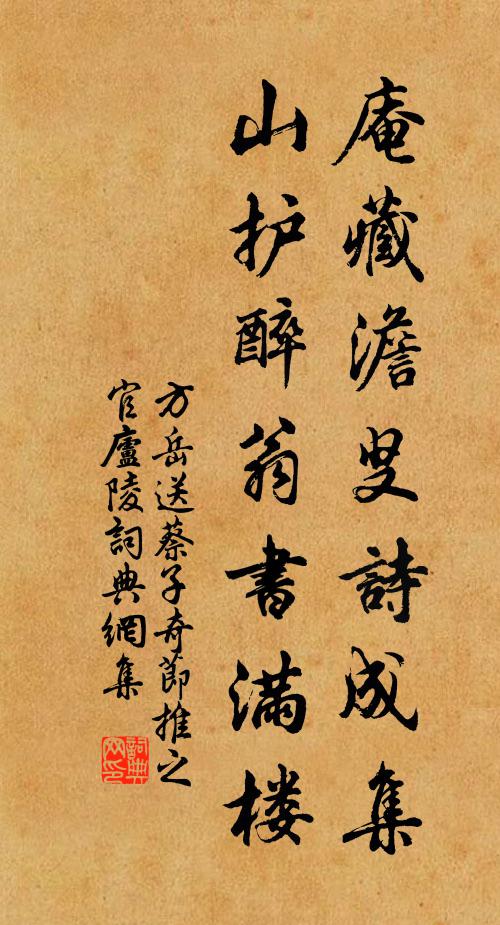 庵藏澹叟詩成集
山护醉翁書满楼
方岳送蔡子奇節推之
官廬陵詞典網集
詞典网印